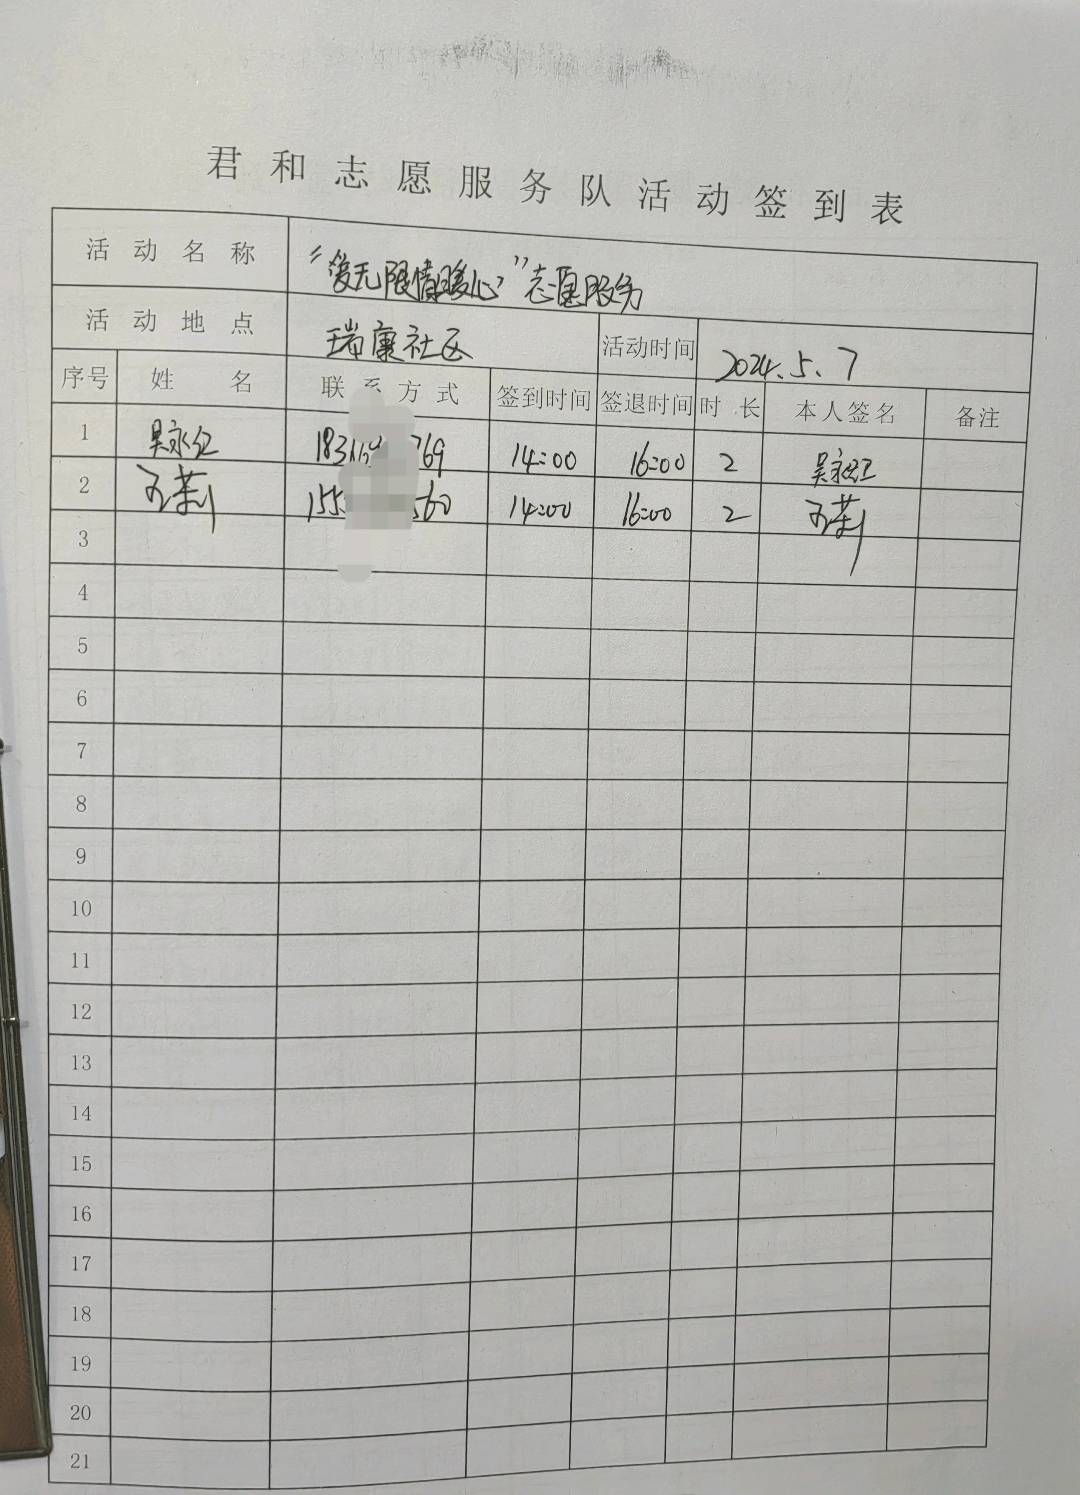 君和志愿服务队活动签到表
活动名称 “爱无限情暖心”志愿服务
活动地点 瑞康社区 活动时间 2024.5.7
序号 姓名 联系方式 签到时间 签退时间 时长 本人签名 备注
1 吴永红 183 769 14:00 16:00 2 吴永红
2 155 560 14:00 16:00 2
3
4
5
6
7
8
9
10
11
12
13
14
15
16
17
18
19
20
21